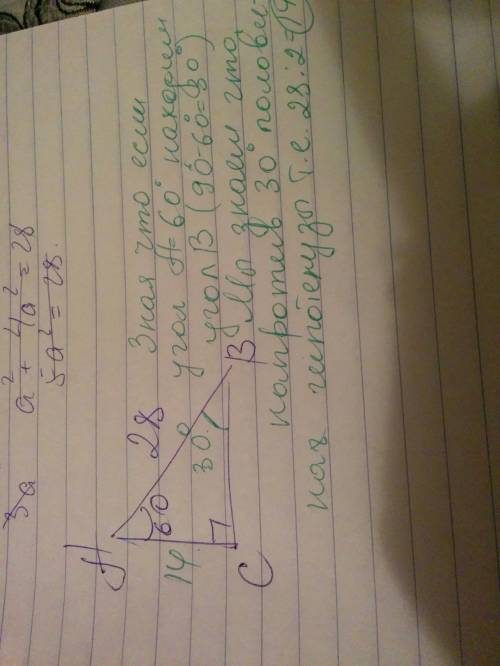 a² + 4a² = 28
5a² = 28.
A
60
28
14
30°
C
B
Зная что если
угол А=60° находим
угол B (90°-60°=30°)
Мы знаем что,
напротив 30° полови-
на гипотенузы т.е. 28:2=14